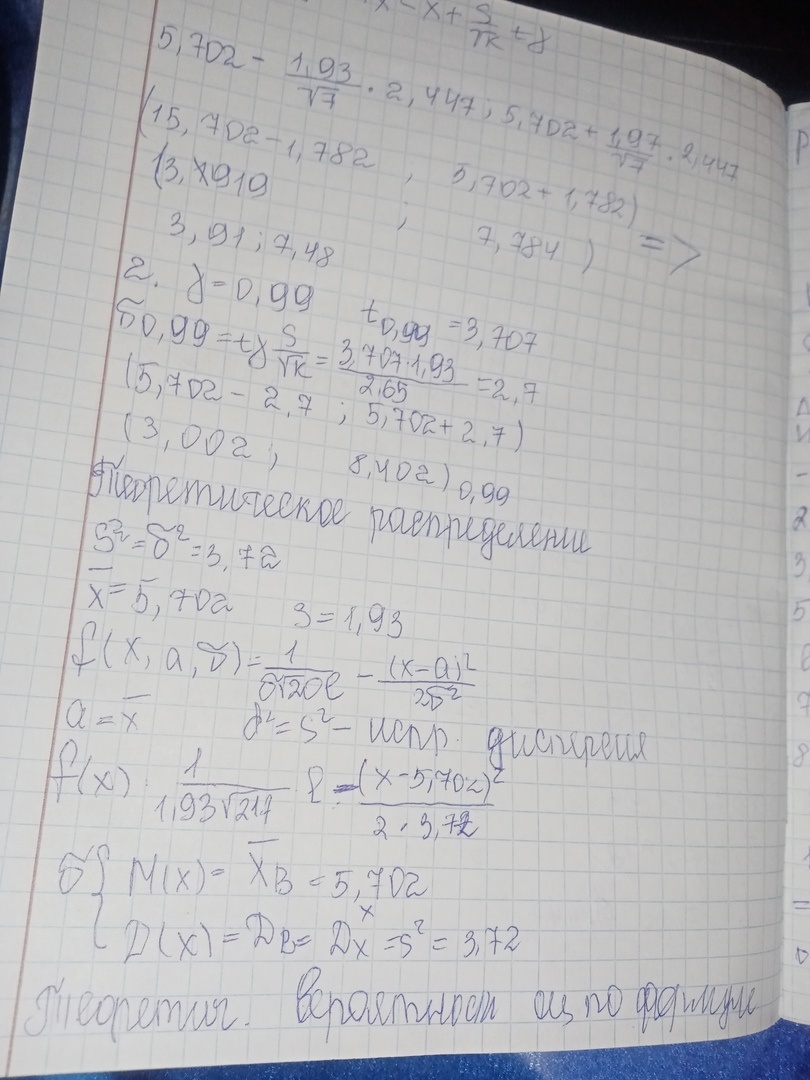 x - x + S/√k + γ
5,702 - 1,93/√7 · 2,447; 5,702 + 1,97/√7 · 2,447
(15,702 - 1,782 ; 5,702 + 1,782)
(3,919 ; 7,784) =>
3,91; 7,48
2. γ = 0,99 t0,99 = 3,707
δ0,99 = tγ S/√k = 3,707·1,93/2,65 = 2,7
(5,702 - 2,7 ; 5,702 + 2,7)
(3,002 ; 8,402)0,99
Теоретическое распределение
S² = σ² = 3,72
x̄ = 5,702 3 = 1,93
f(x, a, σ) = 1/σ√2π e - (x-a)²/2σ²
a = x̄ σ² = S² - испр. дисперсия
f(x) · 1/1,93√2π e - (x-5,702)²/2·3,72
σ { M(x) = x̄в = 5,702
D(x) = Dв = Dx = S² = 3,72
Теоретич. вероятност оц по формуле